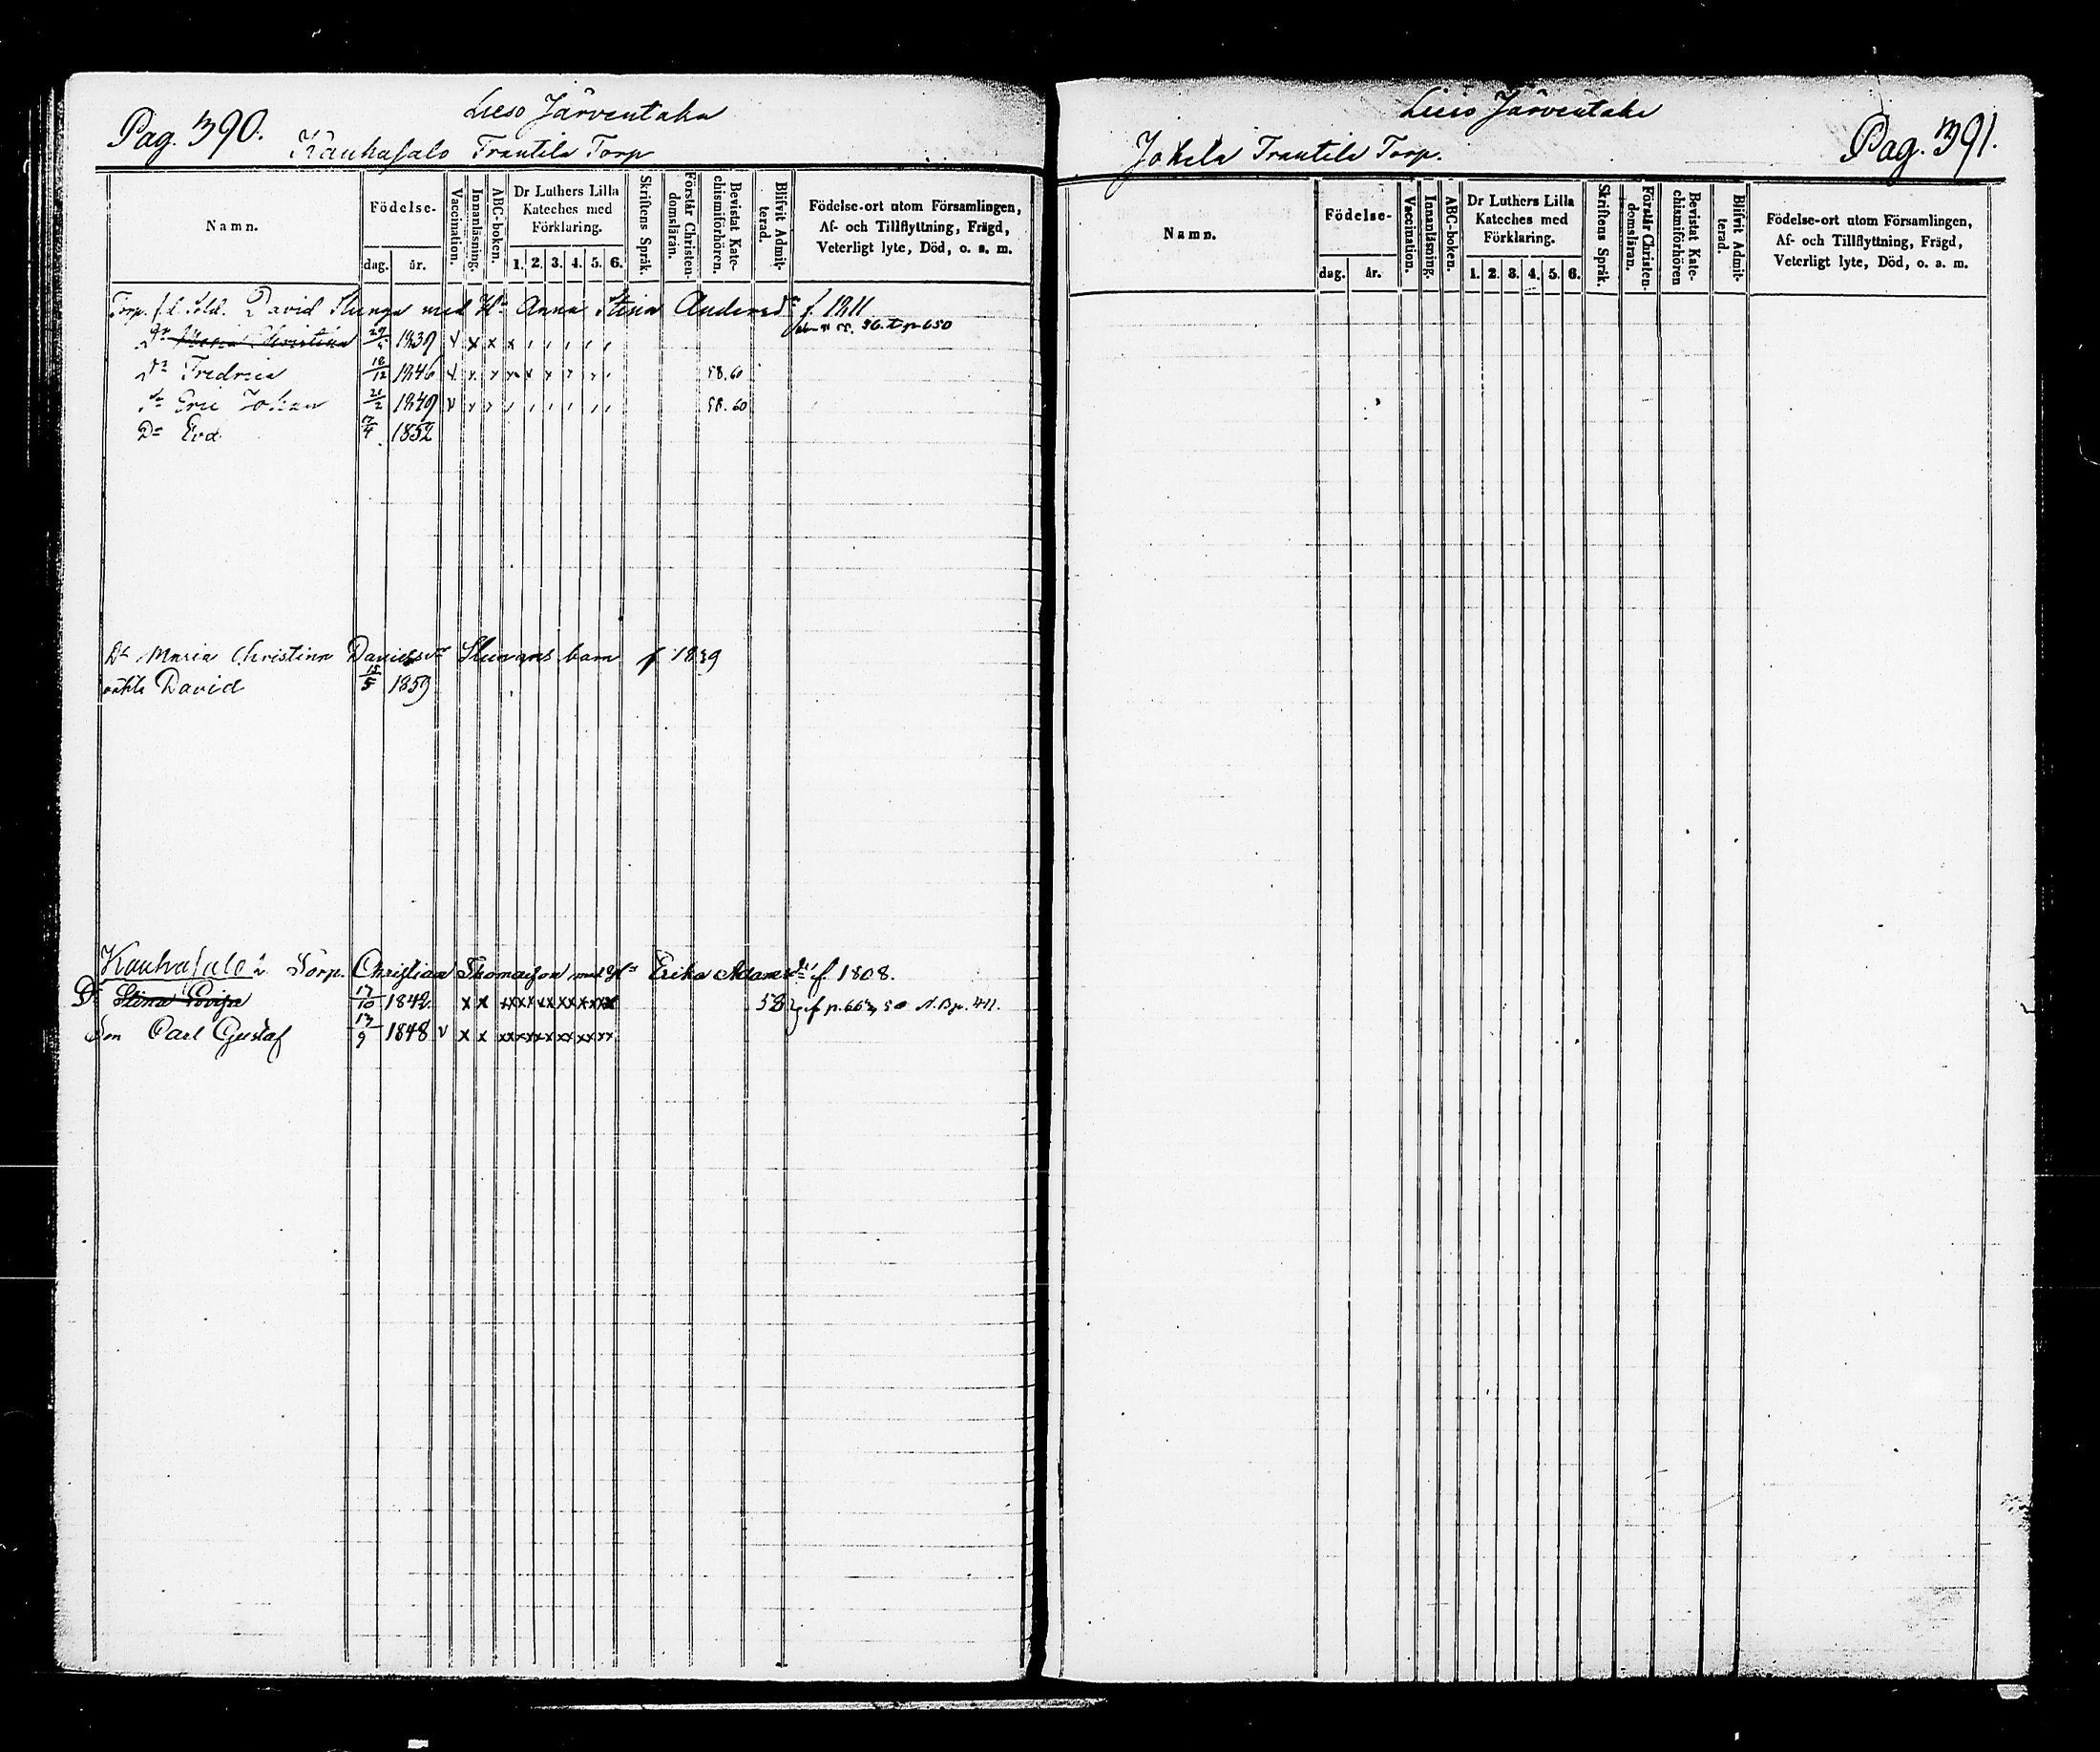 Pag. 390.
Lieso Järventaka
Kauhasalo Trantila Torp
Namn.
Födelse-
dag. år.
Vaccination.
Innanläsning.
ABC-boken.
Dr Luthers Lilla
Kateches med
Förklaring.
1. 2. 3. 4. 5. 6.
Skriftens Språk.
Förstår Christen-
domsläran.
Bevistat Kate-
chismiförhören.
Blifvit Admit-
terad.
Födelse-ort utom Församlingen,
Af- och Tillflyttning, Frägd,
Veterligt lyte, Död, o. s. m.
Torp. f.d. Sold. David Slunga med H. Anna Stina Andersdr f. 1811
Dr Maria Christina 29 1839 v x x x p 650
Dr Fredrica 18/12 1846 v x x x x x x 58. 60
Eric Johan 21/2 1849 v 58. 60
Dr Eva 17/4 1852
Dr Maria Christina Davidsdr Slungas barn f 1839
oäkta David 15/5 1859
Kauhasalo 2. Torp. Christian Thomasson med H. Erika Adamsdr f. 1808.
Dr Stina Lovisa 17/10 1842 x x xxxxxxxxxxxx 58
Son Carl Gustaf 13/9 1848 v x x xxxxxxxxxxxx
Pag. 391.
Lieso Järventaka
Jokela Trantila Torp.
Namn.
Födelse-
dag. år.
Vaccination.
Innanläsning.
ABC-boken.
Dr Luthers Lilla
Kateches med
Förklaring.
1. 2. 3. 4. 5. 6.
Skriftens Språk.
Förstår Christen-
domsläran.
Bevistat Kate-
chismiförhören
Blifvit Admit-
terad.
Födelse-ort utom Församlingen,
Af- och Tillflyttning, Frägd,
Veterligt lyte, Död, o. a. m.